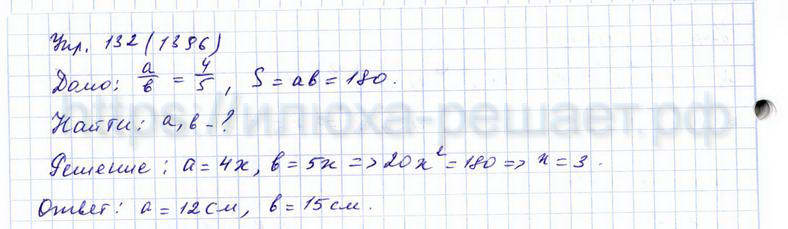 Упр. 132 (1396)
Дано: a/b = 4/5, S = ab = 180.
https://илюха-решает.рф
Найти: a, b - ?
Решение: a = 4x, b = 5x => 20x² = 180 => x = 3.
Ответ: a = 12 см, b = 15 см.